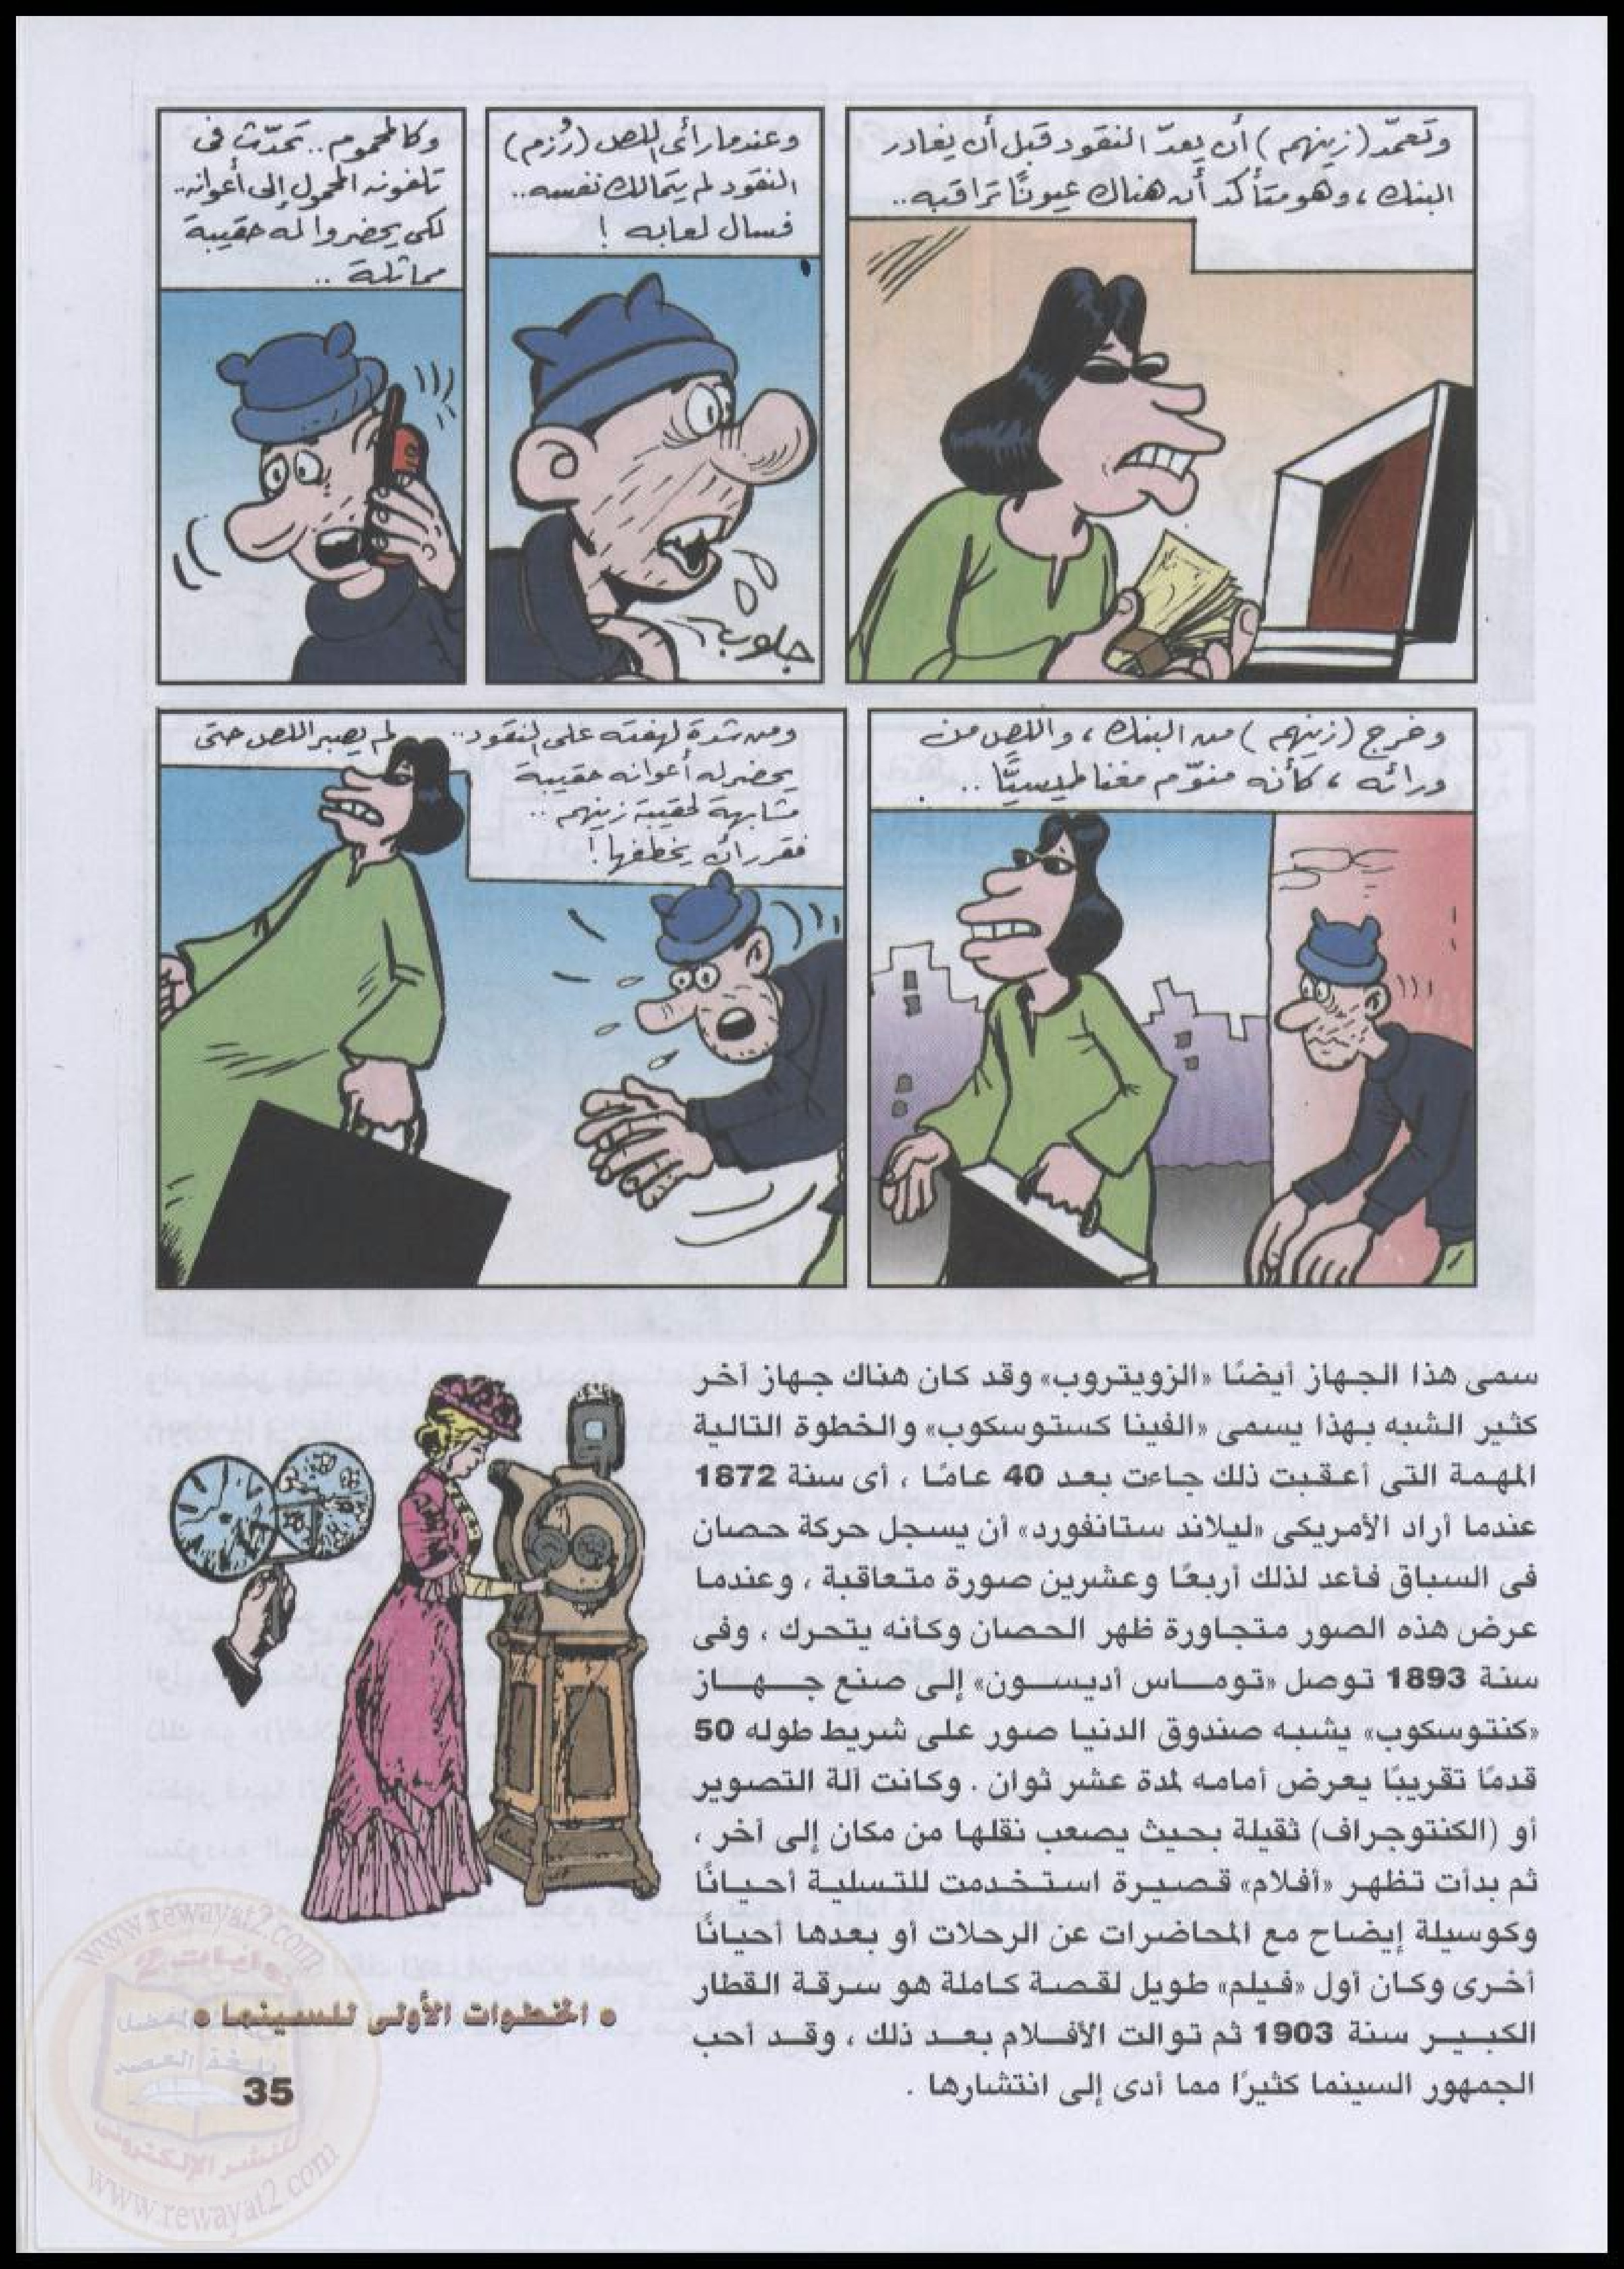 وتعمّد (زينهم) أن يعدّ النقود قبل أن يغادر
البنك، وهو متأكد أن هناك عيونًا تراقبه..
وعندما رأى اللص (رُزم)
النقود لم يتمالك نفسه..
فسال لعابه !
جلوب
وكالمحموم.. تحدّث فى
تلفونه المحمول إلى أعوانه..
لكى يحضروا له حقيبة
مماثلة ..
وخرج (زينهم) من البنك، واللص من
ورائه، كأنه منوّم مغناطيسيًّا ..
ومن شدة لهفته على النقود.. لم يصبر اللص حتى
يحضر له أعوانه حقيبة
مشابهة لحقيبة زينهم ..
فقرر أن يخطفها !
سمى هذا الجهاز أيضًا «الزويتروب» وقد كان هناك جهاز آخر
كثير الشبه بهذا يسمى «الفينا كستوسكوب» والخطوة التالية
المهمة التى أعقبت ذلك جاءت بعد 40 عامًا ، أى سنة 1872
عندما أراد الأمريكى «ليلاند ستانفورد» أن يسجل حركة حصان
فى السباق فأعد لذلك أربعًا وعشرين صورة متعاقبة ، وعندما
عرض هذه الصور متجاورة ظهر الحصان وكأنه يتحرك ، وفى
سنة 1893 توصل «تومـاس أديسـون» إلى صنع جـهـاز
«كنتوسكوب» يشبه صندوق الدنيا صور على شريط طوله 50
قدمًا تقريبًا يعرض أمامه لمدة عشر ثوان . وكانت آلة التصوير
أو (الكنتوجراف) ثقيلة بحيث يصعب نقلها من مكان إلى آخر ،
ثم بدأت تظهر «أفلام» قصيرة استخدمت للتسلية أحيانًا
وكوسيلة إيضاح مع المحاضرات عن الرحلات أو بعدها أحيانًا
أخرى وكان أول «فيلم» طويل لقصة كاملة هو سرقة القطار
الكبير سنة 1903 ثم توالت الأفلام بعد ذلك ، وقد أحب
الجمهور السينما كثيرًا مما أدى إلى انتشارها .
• الخطوات الأولى للسينما •
35
www.rewayat2.com
www.rewayat2.com